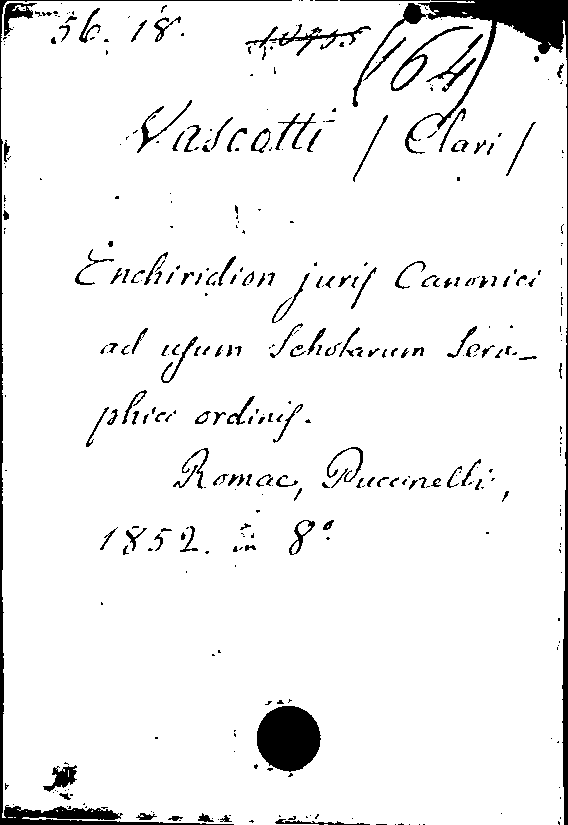 56. 18. (164)
Vascotti / Clari /
Enchiridion juris Canonici
ad usum Scholarum Sera-
phici ordinis.
Romae, Puccinelli,
1852. in 8°